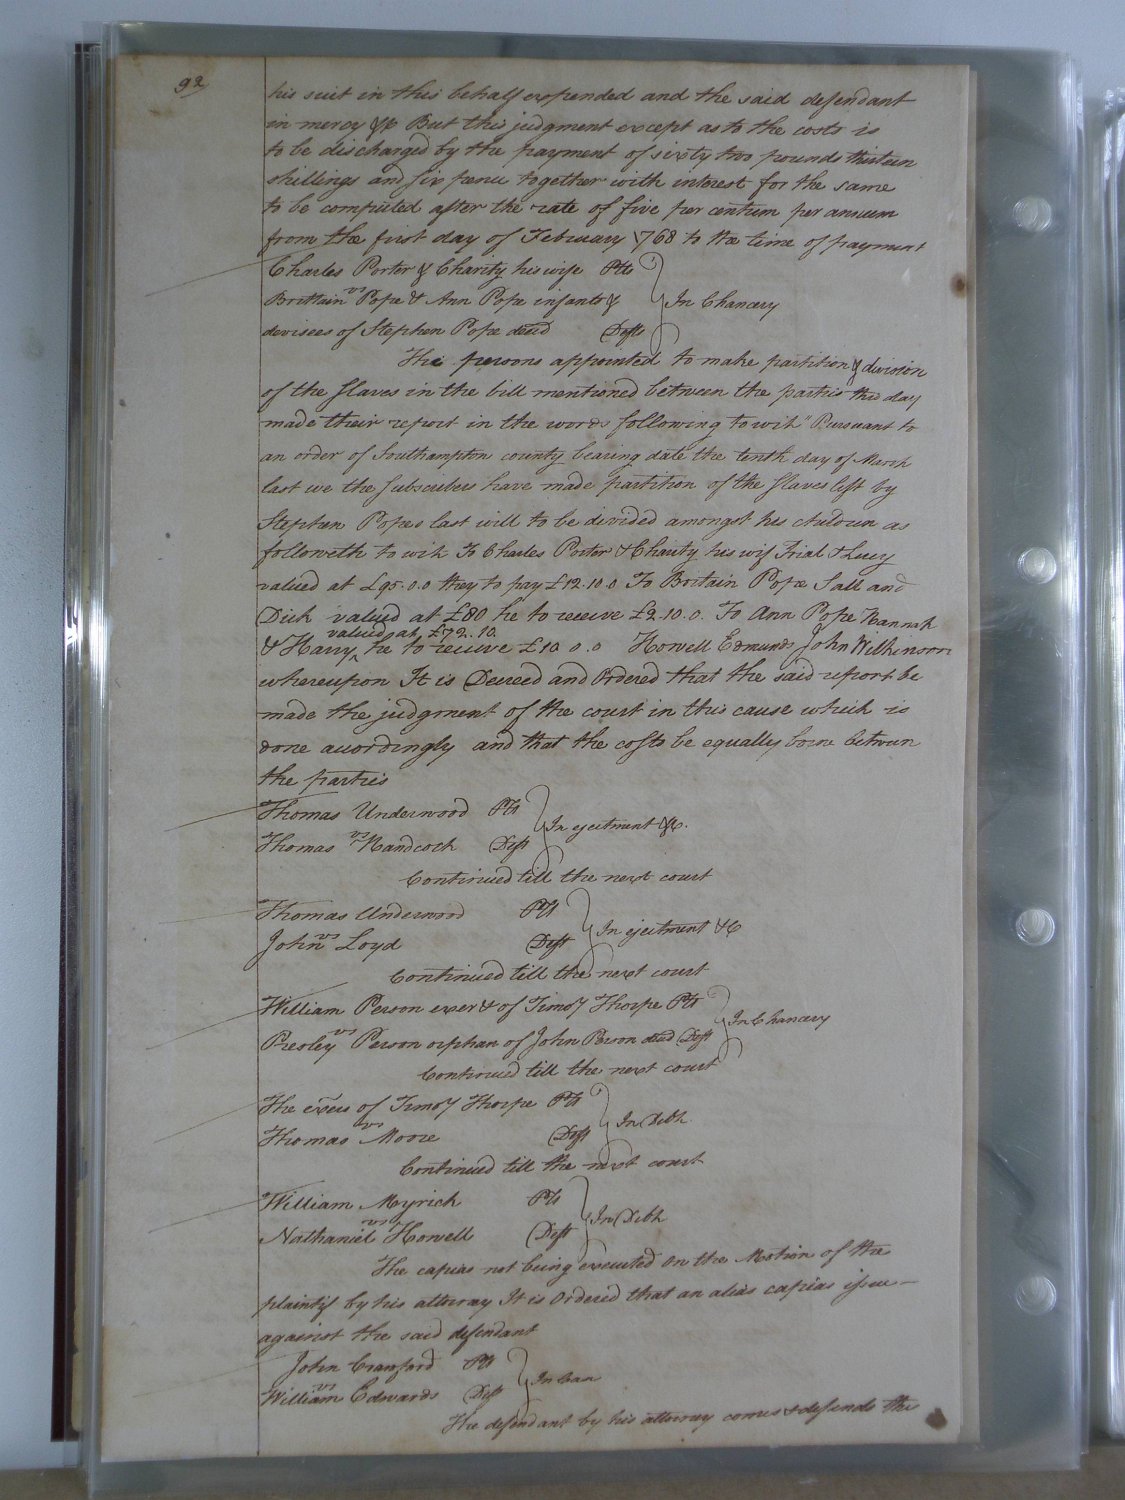 92
his suit in this behalf expended and the said defendant
in mercy &c But this judgment except as to the costs is
to be discharged by the payment of sixty two pounds thirteen
shillings and six pence together with interest for the same
to be computed after the rate of five per centum per annum
from the first day of February 1768 to the time of payment
Charles Porter & Charity his wife Plts
vs
Brittain Pope & Ann Pope infants &
In Chancery
devisees of Stephen Pope deced Defts
The persons appointed to make partition & division
of the slaves in the bill mentioned between the parties this day
made their report in the words following to wit "Pursuant to
an order of Southampton county bearing date the tenth day of March
last we the subscribers have made partition of the slaves left by
Stephen Popes last will to be divided amongst his children as
followeth to wit To Charles Porter & Charity his wife Trial & Lucy
valued at £95.0.0 they to pay £12.10.0 To Britain Pope Sall and
Dick valued at £80 he to receive £2.10.0. To Ann Pope Hannah
valued at £72..10.
& Harry he to receive £10 0.0 Howell Edmunds John Wilkinson
whereupon It is Decreed and Ordered that the said report be
made the judgment of the court in this cause which is
done accordingly and that the costs be equally borne between
the parties
Thomas Underwood Plt
vs
In ejectment &c.
Thomas Handcock Deft
Continued till the next court
Thomas Underwood Plt
vs
In ejectment &c
John Loyd Deft
Continued till the next court
William Person exer &c of Timoy Thorpe Plt
vs
In Chancery
Presley Person orphan of John Person deced Deft
Continued till the next court
The exers of Timoy Thorpe Plts
vs
In Debt
Thomas Moore Deft
Continued till the next court
William Myrick Plt
vs
In Debt
Nathaniel Howell Deft
The capias not being executed On the Motion of the
plaintif by his attorney It is Ordered that an alias capias issue
against the said defendant
John Crawford Plt
vs
In Case
William Edwards Deft
The defendant by his attorney comes & defends the